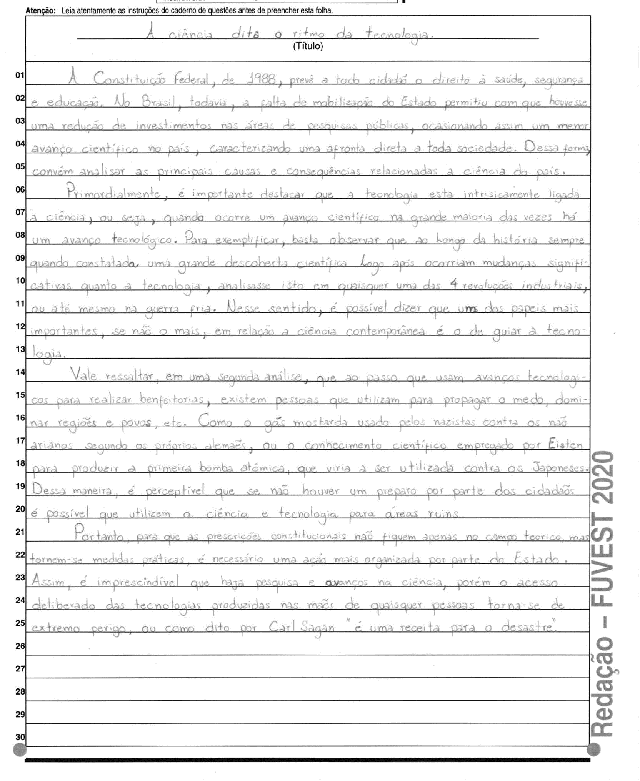 Atenção: Leia atentamente as instruções do caderno de questões antes de preencher esta folha.
A ciência dita o ritmo da tecnologia.
(Título)
01 A Constituição Federal, de 1988, prevê a todo cidadã o direito à saúde, segurança
02 e educação. No Brasil, todavia, a falta de mobilização do Estado permitiu com que houvesse
03 uma redução de investimentos nas áreas de pesquisas públicas, ocasionando assim um menor
04 avanço científico no país, caracterizando uma afronta direta a toda sociedade. Dessa forma,
05 convém analisar as principais causas e consequências relacionadas a ciência do país.
06 Primordialmente, é importante destacar que a tecnologia esta intrisicamente ligada
07 à ciência, ou seja, quando ocorre um avanço científico na grande maioria das vezes há
08 um avanço tecnológico. Para exemplificar, basta observar que ao longo da história sempre
09 quando constatada uma grande descoberta científica logo após ocorriam mudanças signifi-
10 cativas quanto a tecnologia, analisasse isto em quaisquer uma das 4 revoluções industriais,
11 ou até mesmo na guerra fria. Nesse sentido, é possível dizer que um dos papeis mais
12 importantes, se não o mais, em relação a ciência contemporânea é o de guiar a tecno-
13 logia.
14 Vale ressaltar, em uma segunda análise, que ao passo que usam avanços tecnologi-
15 cos para realizar benfeitorias, existem pessoas que utilizam para propagar o medo, domi-
16 nar regiões e povos, etc. Como o gás mostarda usado pelos nazistas contra os não
17 arianos segundo os próprios alemães, ou o conhecimento científico empregado por Eisten
18 para produzir a primeira bomba atômica, que viria a ser utilizada contra os Japoneses.
19 Dessa maneira, é perceptível que se não houver um preparo por parte dos cidadãos
20 é possível que utilizem a ciência e tecnologia para áreas ruins.
21 Portanto, para que as prescrições constitucionais não fiquem apenas no campo teorico, mas
22 tornem-se medidas práticas, é necessário uma ação mais organizada por parte do Estado.
23 Assim, é imprescindível que haja pesquisa e avanços na ciência, porém o acesso
24 deliberado das tecnologias produzidas nas mãos de quaisquer pessoas torna-se de
25 extremo perigo, ou como dito por Carl Sagan "é uma receita para o desastre".
26
27
28
29
30
Redação – FUVEST 2020